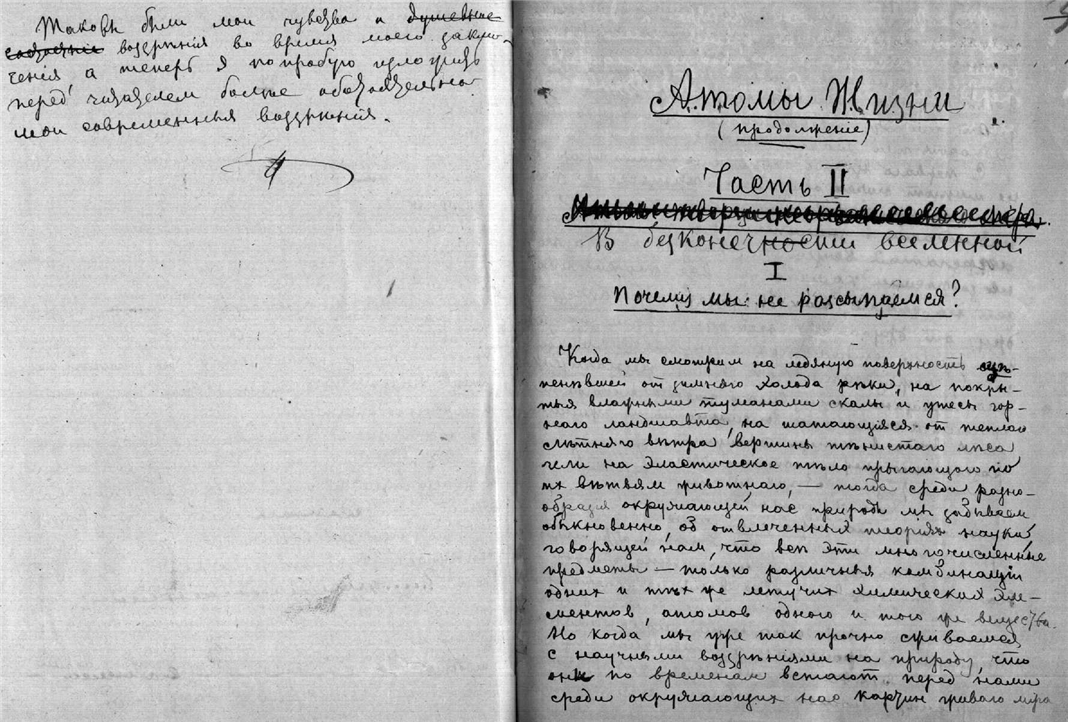 Таковы были мои чувства и душевные
воззрѣнія во время моего заклю-
ченія а теперь я попробую изложить
передъ читателем болѣе обстоятельно
мои современныя воззрѣнія.
Атомы Жизни
(продолженіе)
Часть II
В безконечности вселенной
I
Почему мы не разсыпаемся?
Когда мы смотрим на ледяную поверхность оцѣ-
пенѣвшей от зимняго холода рѣки, на покры-
тыя влажными туманами скалы и утесы гор-
наго ландшафта, на шатающіяся от теплаго
лѣтняго вѣтра вершины тѣнистаго лѣса
или на эластическое тѣло прыгающего по
их вѣтвям животнаго, — тогда среди разно-
образія окружающей нас природы мы забываем
обыкновенно об отвлеченных теоріях науки,
говорящей нам, что всѣ эти многочисленные
предметы — только различныя комбинаціи
одних и тѣх же летучих химических эле-
ментов, атомов одного и того же вещества.
Но когда мы уже так прочно сживаемся
с научными воззрѣніями на природу, что
они по временам встают перед нами
среди окружающих нас картин живаго міра